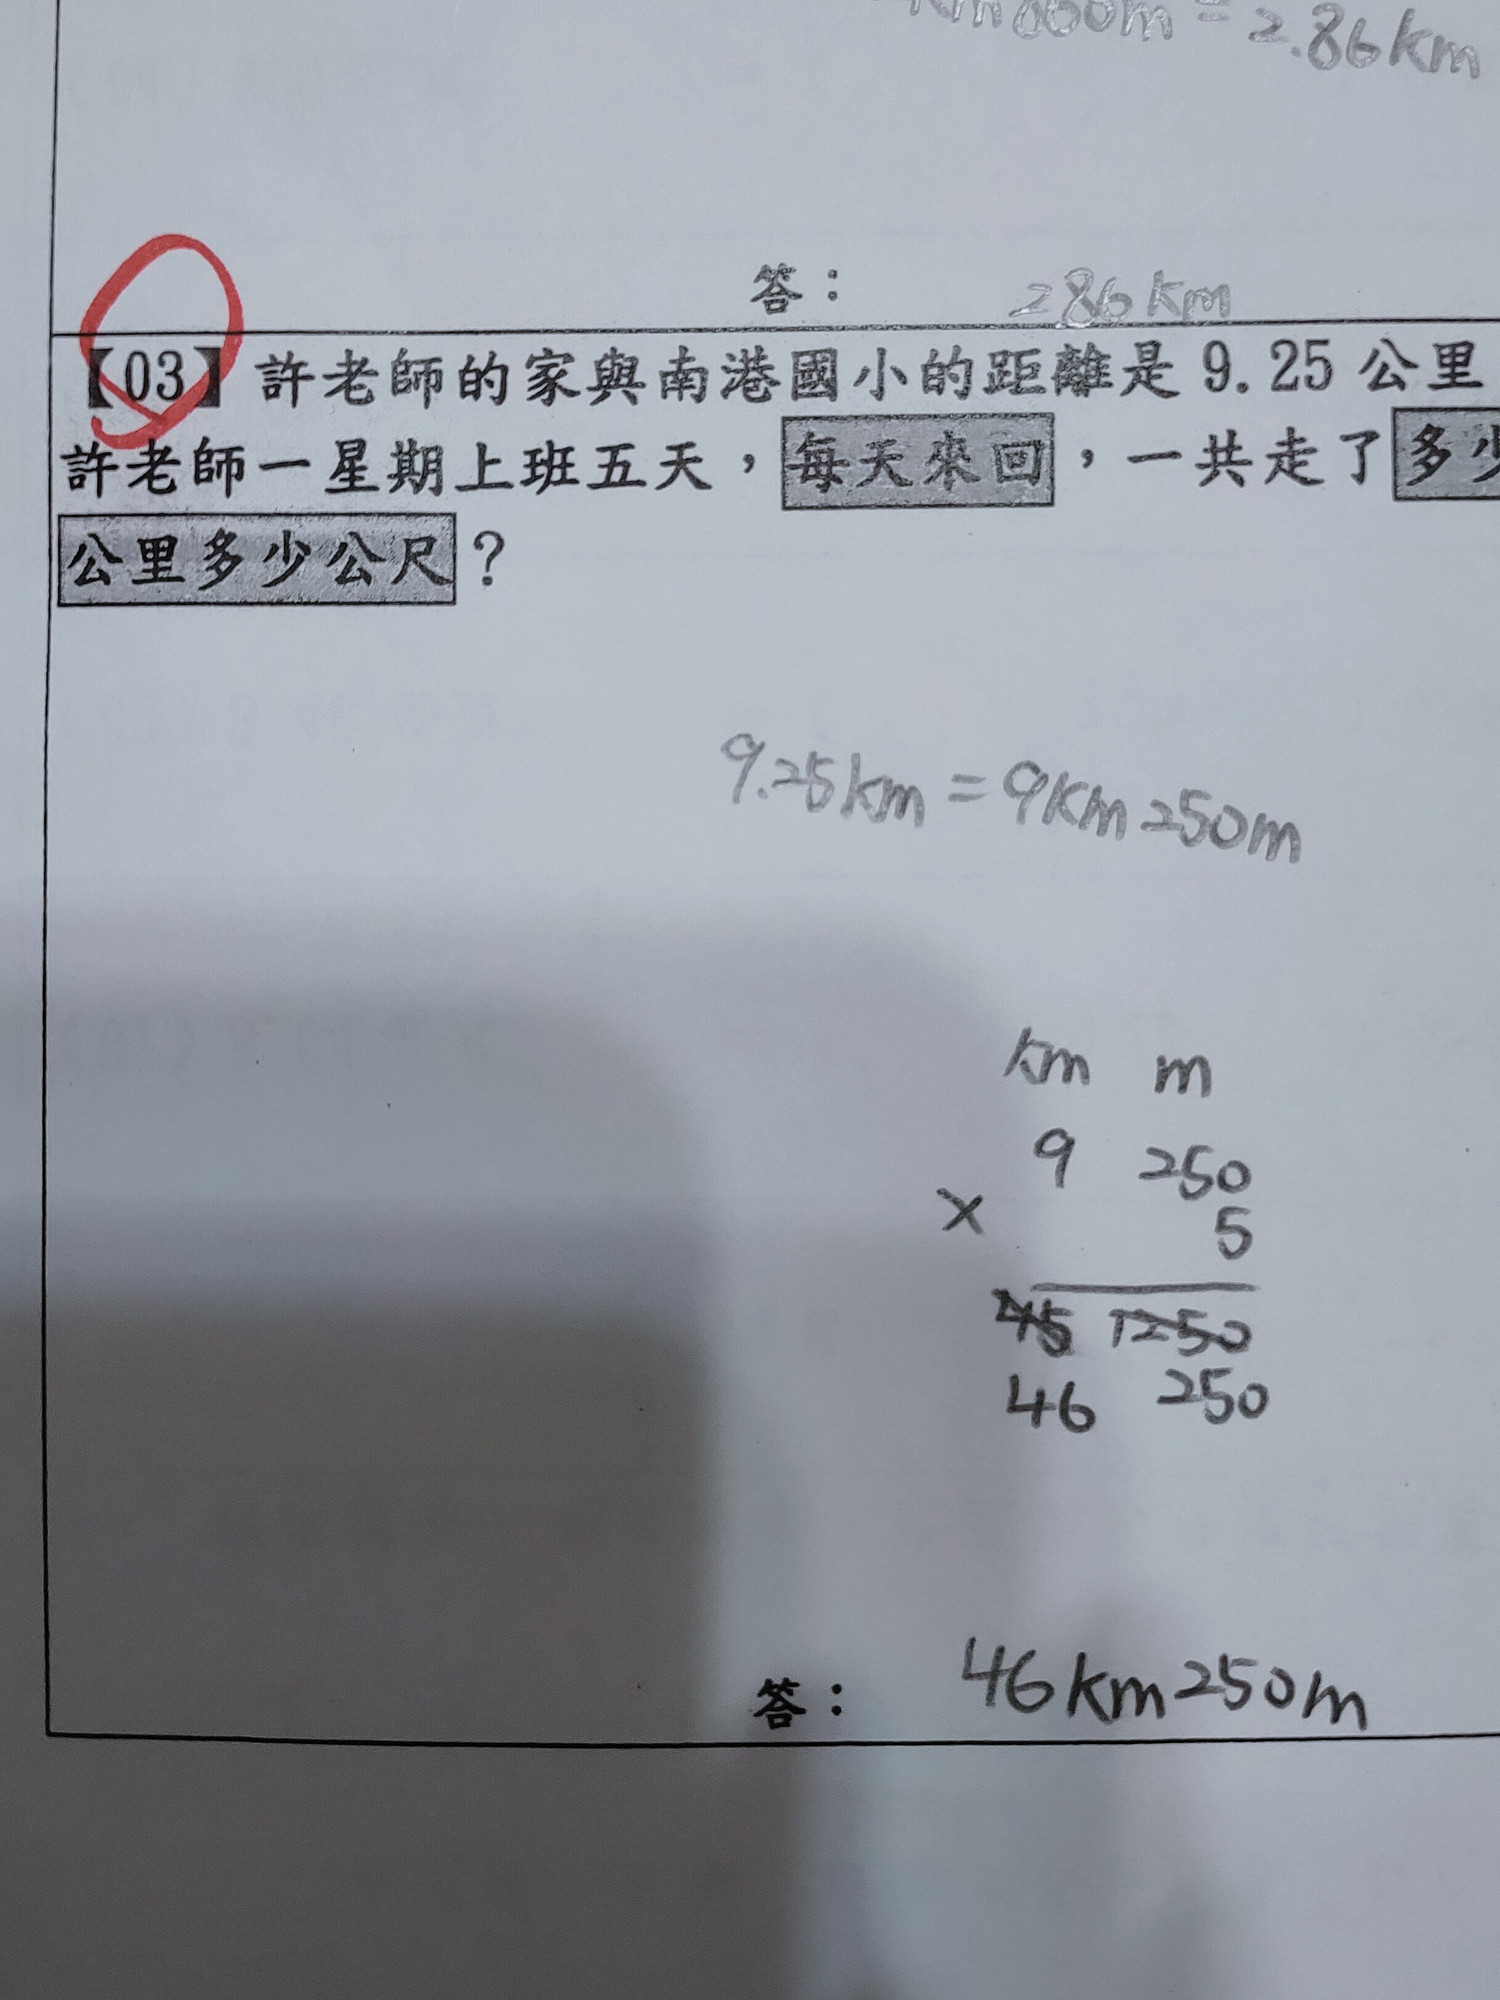 km860m = 2.86km
答： 2.86km
【03】許老師的家與南港國小的距離是 9.25 公里
許老師一星期上班五天，每天來回，一共走了多少
公里多少公尺？
9.25km = 9km 250m
km m
9 250
× 5
45 1250
46 250
答： 46km250m